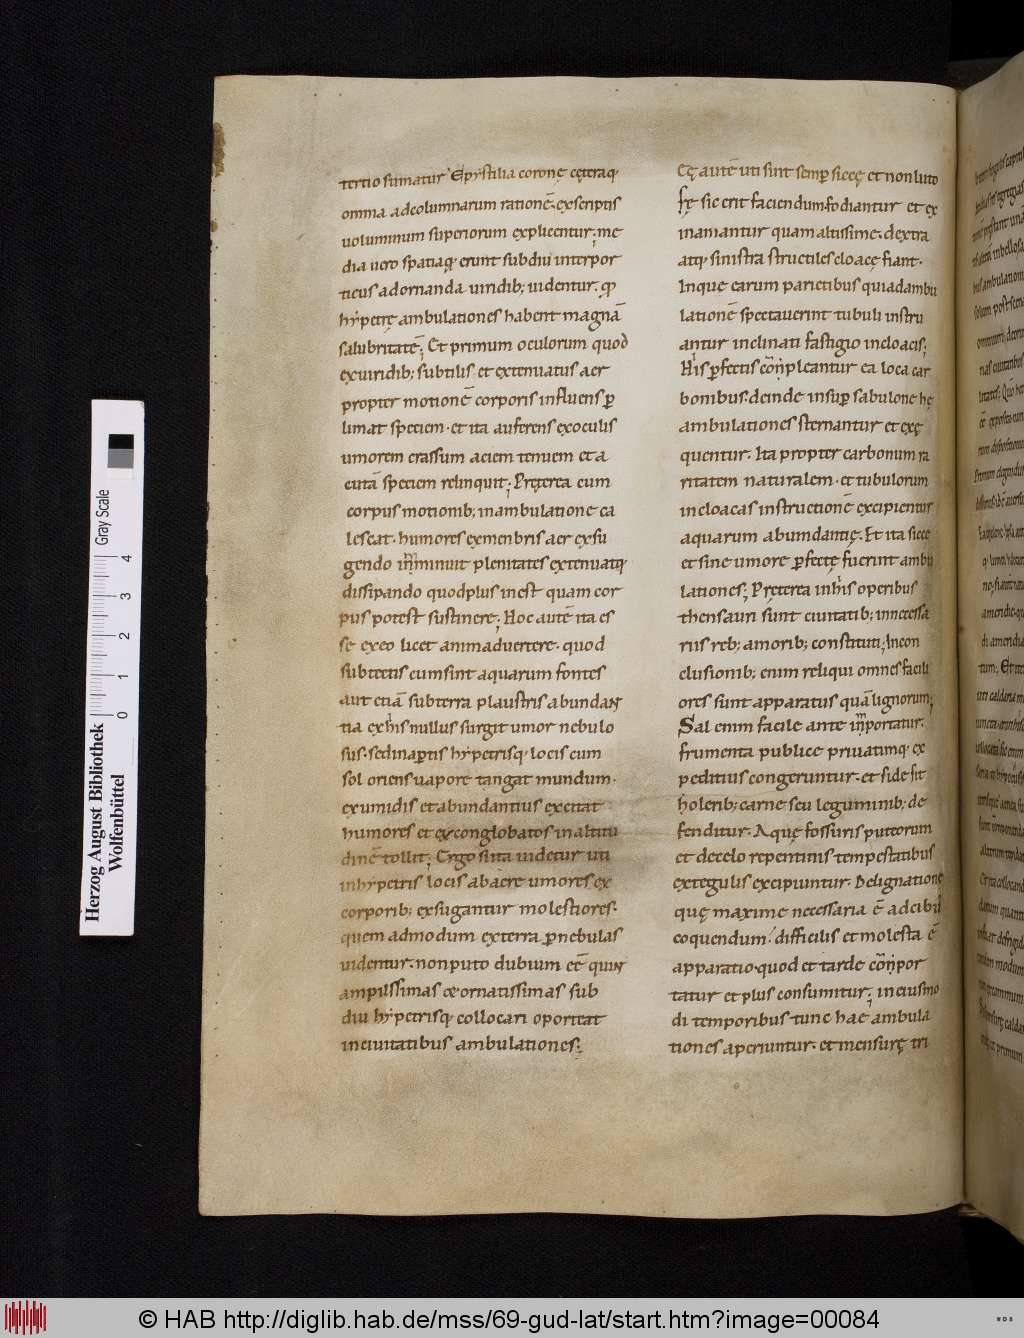 tertio sumatur. Epystilia coronę cęteraq;
omnia adcolumnarum rationē. exscriptis
uoluminum superiorum explicentur; me
dia uero spatiaq; erunt subdiu interpor
ticus adornanda uiridib; uidentur. qđ
hypetrę ambulationes habent magnā
salubritatē; Et primum oculorum quod
exuiridib; subtilis et extenuatus aer
propter motionē corporis influens ꝑ
limat speciem. et ita auferens exoculis
umorem crassum aciem tenuem et a
cutā speciem relinquit; Pręterea cum
corpus motionib; inambulatione ca
lescat. humores exmembris aer exsu
gendo imminuit plenitates extenuatq;
dissipando quodplus inest quam cor
pus potest sustinere; Hoc autē ita es
se exeo licet animaduertere. quod
subtectis cumsint aquarum fontes
aut etiā subterra plaustris abundan
tia exhis nullus surgit umor nebulo
sus. sedinaꝑtis hypetrisq; locis cum
sol oriens uapore tangat mundum.
exumidis et abundantius excitat
humores et exconglobatos in altitu
dinē tollit; Ergo si ita uidetur uti
inhypetris locis abaere umores ex
corporib; exsugantur molestiores.
quem admodum exterra ꝑnebulas
uidentur. non puto dubium eē quin
amplissimas ac ornatissimas sub
diu hypetrisq; collocari oporteat
inciuitatibus ambulationes;
Cę autē uti sint semꝑ siccę et non luto
sę sic erit faciendum. fodiantur et ex
inaniantur quam altissime. dextra
atq; sinistra structiles cloacę fiant.
Inque earum parietibus quiadambu
lationē spectauerint tubuli instru
antur inclinati fastigio incloacis;
His ꝑfectis cōnpleantur ea loca car
bonibus. deinde insuꝑ sabulone hę
ambulationes sternantur et exę
quentur. Ita propter carbonum ra
ritatem naturalem. et tubulorum
incloacas instructionē excipientur
aquarum abundantię. Et ita siccę
et sine umore ꝑfectę fuerint ambu
lationes; Pręterea in his operibus
thensauri sunt ciuitatib; innecessa
riis reb; amorib; constituti; Incon
clusionib; enim reliqui omnes facili
ores sunt apparatus quā lignorum;
Sal enim facile ante importatur.
frumenta publice priuatimq; ex
peditius congeruntur. et side sit
holerib; carne seu leguminib; de
fenditur. Aquę fossuris puteorum
et decelo repentinis tempestatibus
extegulis excipiuntur. Delignatione
quę maxime necessaria ē adcibū
coquendum. difficilis et molesta ē
apparatio. quod et tarde cōnpor
tatur et plus consumitur; ineiusmo
di temporibus tunc hae ambula
tiones aperiuntur. et mensurę tri
Herzog August Bibliothek
Wolfenbüttel
0 1 2 3 4
Gray Scale
© HAB http://diglib.hab.de/mss/69-gud-lat/start.htm?image=00084